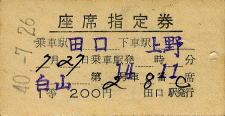 座席指定券
乗車駅 田口 下車駅 上野
7月27日乗車駅発 時 分
白山 第 号
1等 200円 田口駅発行
40-7.26